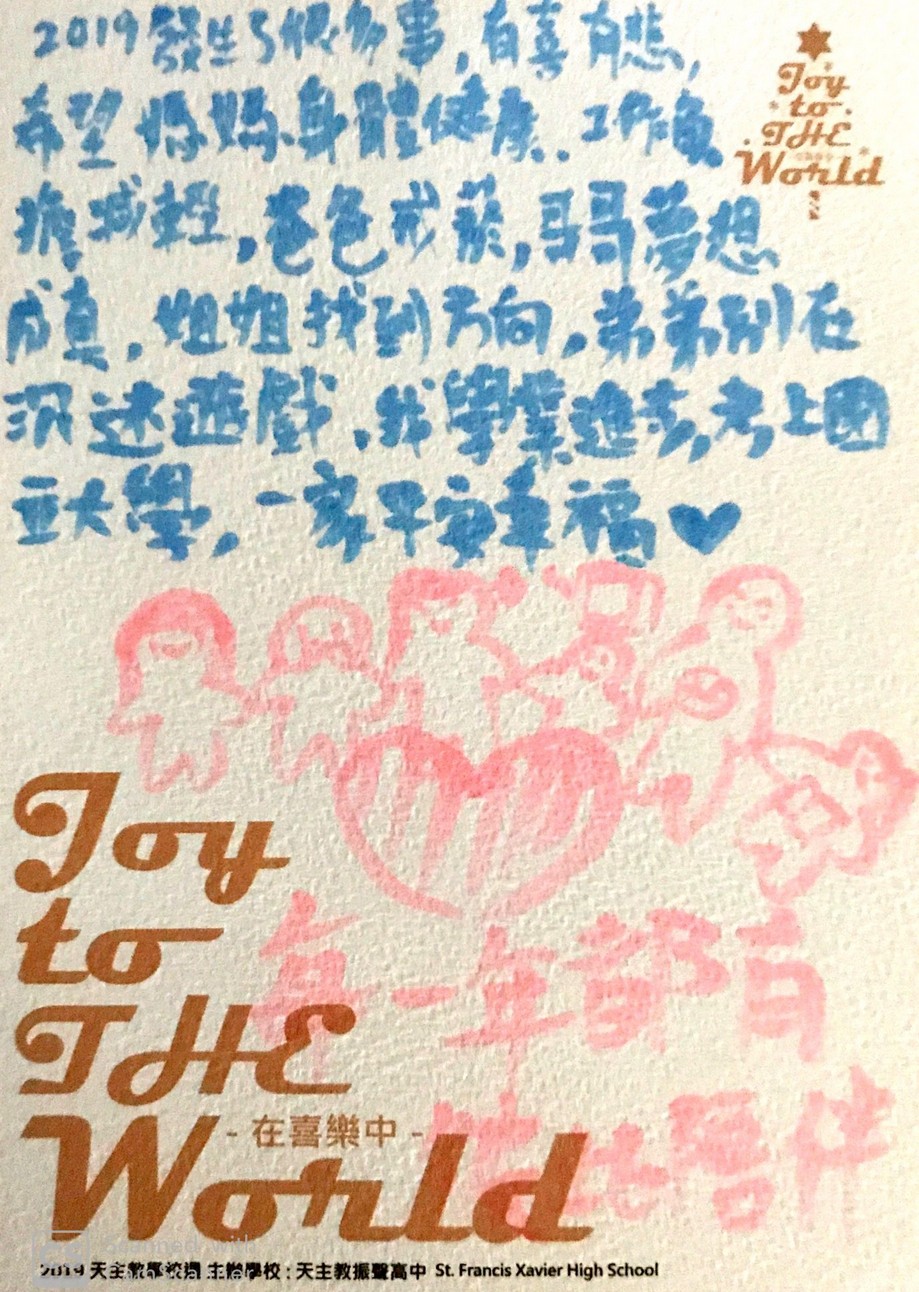 2019發生了很多事,有喜有悲,
希望媽媽身體健康、工作負
擔減輕,爸爸戒菸,哥哥夢想
成真,姐姐找到方向,弟弟別在
沉迷遊戲,我學業進步,考上國
立大學,一家平安幸福
Joy
to
THE
World
每一年都有
彼此陪伴
Joy
to
THE
World
- 在喜樂中 -
Scanned with
CamScanner
2019 天主教學校週 主辦學校:天主教振聲高中 St. Francis Xavier High School